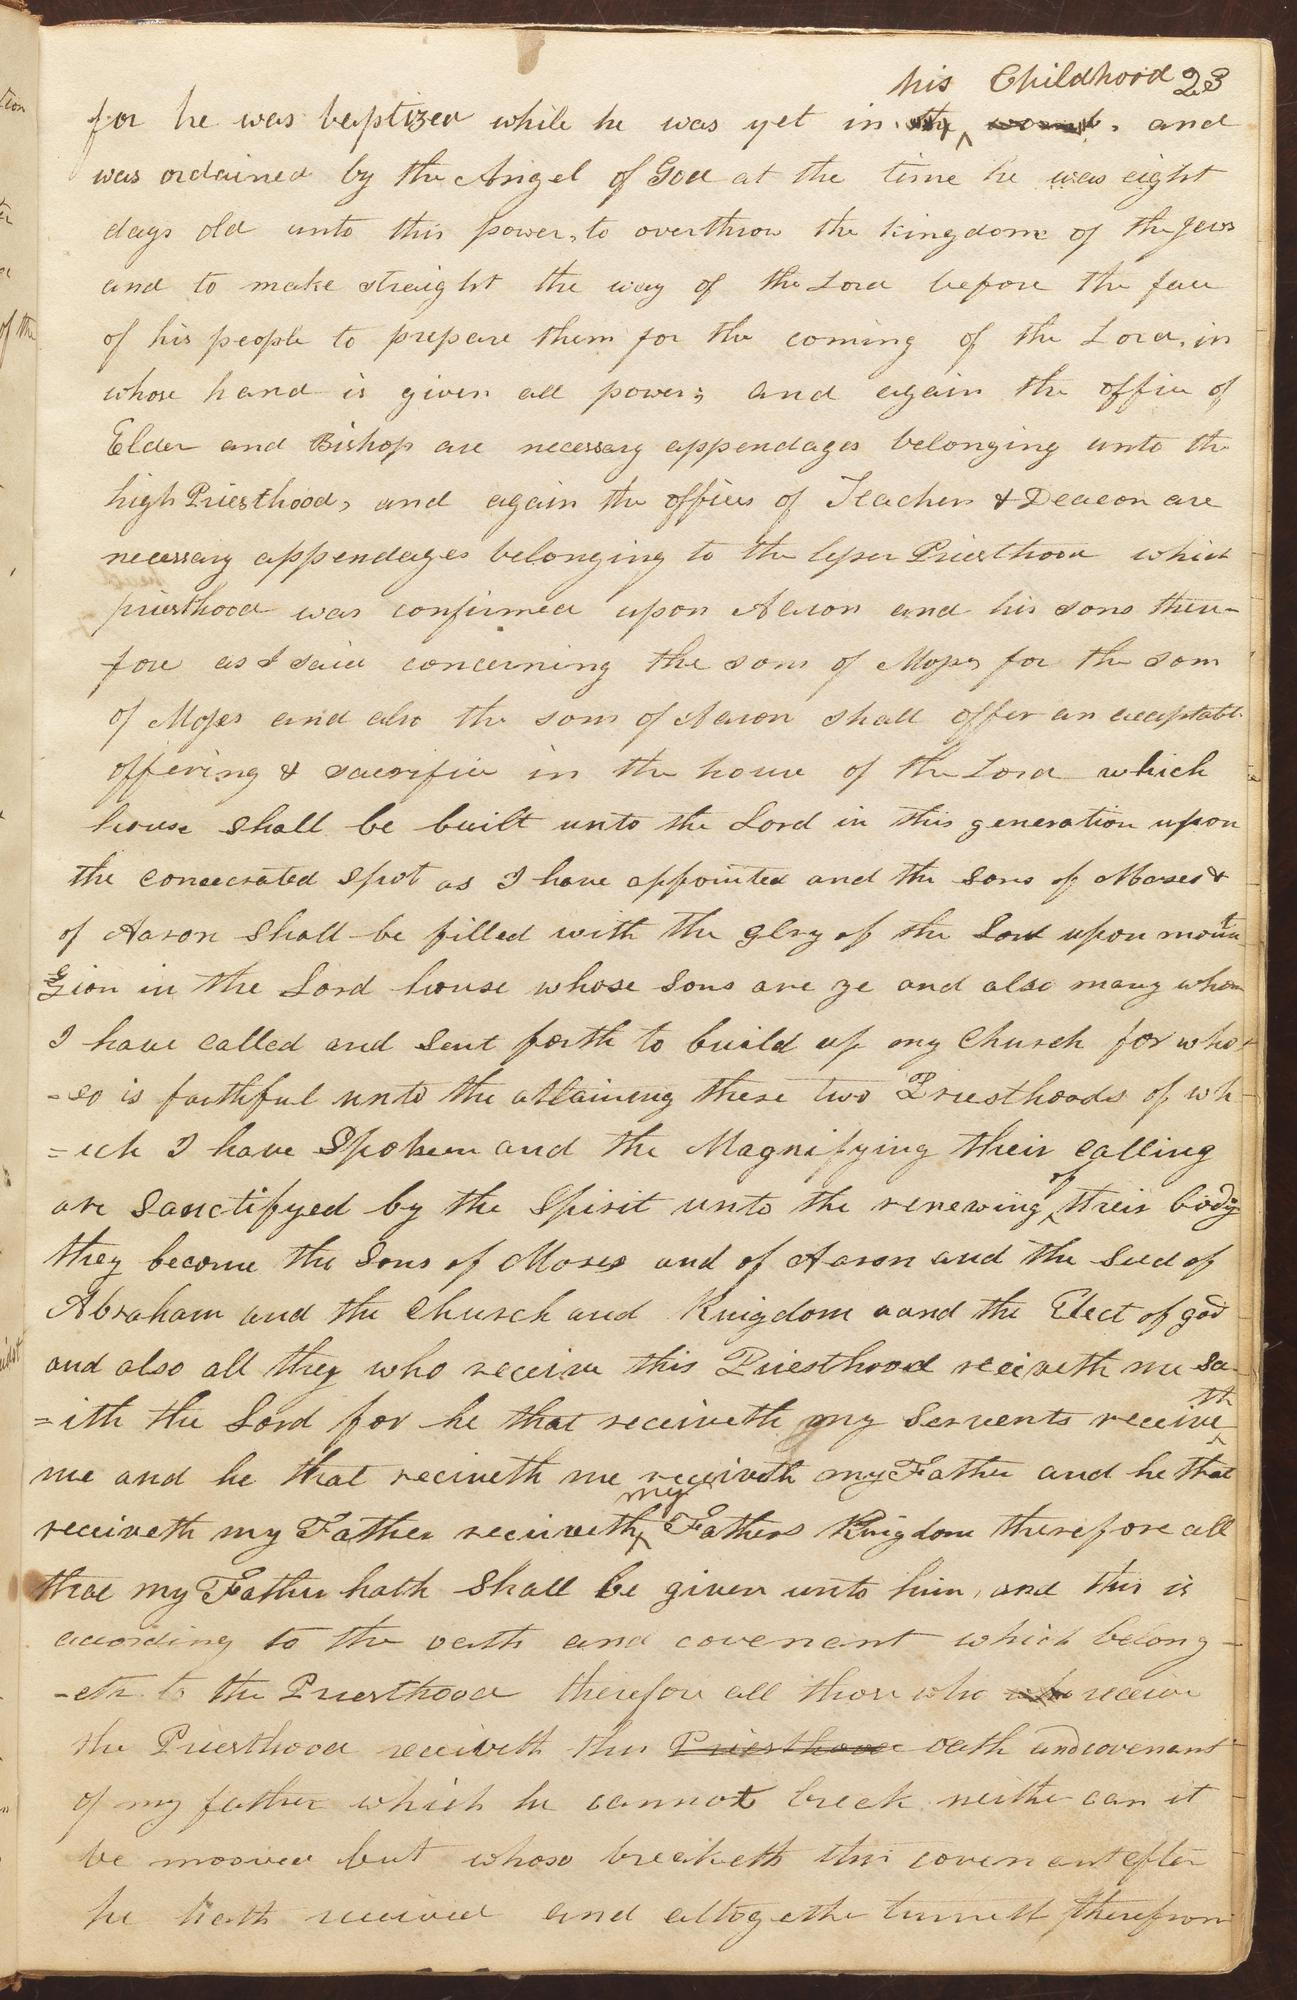 his Childhood 23
for he was baptized while he was yet in the womb. and
was ordained by the Angel of God at the time he was eight
days old unto this power, to overthrow the kingdom of the Jews
and to make straight the way of the Lord before the face
of his people to prepare them for the coming of the Lord, in
whose hand is given all power; and again the office of
Elder and Bishop are necessary appendages belonging unto the
high Priesthood, and again the offices of Teachers & Deacon are
necessary appendages belonging to the lesser Priesthood which
priesthood was confirmed upon Aaron and his sons there-
fore as I said concerning the sons of Moses for the sons
of Moses and also the sons of Aaron shall offer an acceptable
offering & sacrifice in the house of the Lord which
house shall be built unto the Lord in this generation upon
the concecrated spot as I have appointed and the sons of Moses &
of Aaron shall be filled with the glory of the Lord upon mount
Zion in the Lord house whose sons are ye and also many whom
I have called and sent forth to build up my Church for who
-so is faithful unto the attaining these two Priesthoods of wh
=ich I have spoken and the Magnifying their calling
are sanctifyed by the Spirit unto the renewing of their body
they become the sons of Moses and of Aaron and the seed of
Abraham and the Church and Kingdom aand the Elect of god
and also all they who receive this Priesthood receiveth me sa
=ith the Lord for he that receiveth my servents receiveth
me and he that reciveth me receiveth my Father and he that
receiveth my Father receiveth my Fathers Kingdom therefore all
that my Father hath shall be given unto him, and this is
according to the oath and covenant which belong-
-eth to the Priesthood therefore all those who who receive
the Priesthood receiveth this Priesthood oath and covenant
of my father which he cannot break neithe can it
be mooved but whoso breaketh this covenant after
he hath received and altogethe turneth therefrom